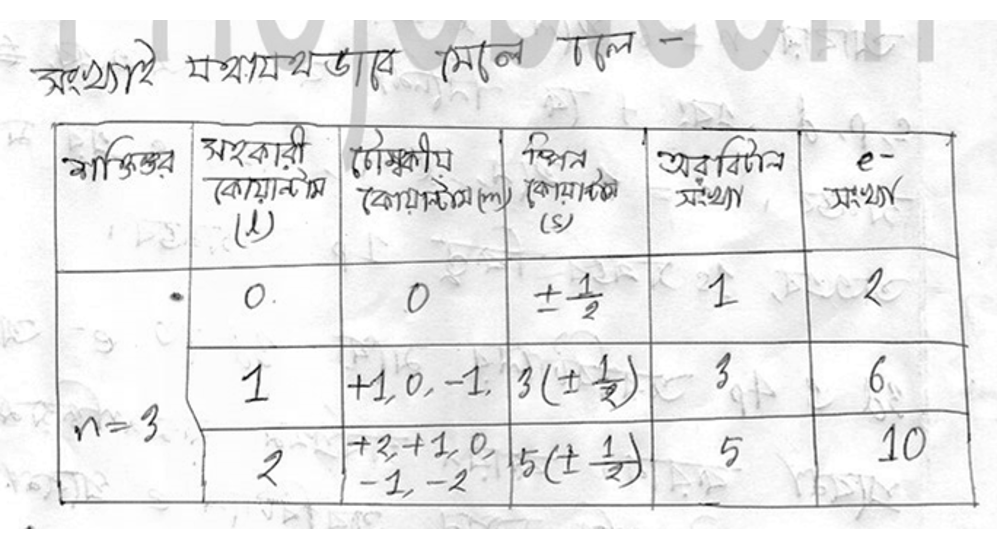 সংখ্যাই যথাযথভাবে মেনে চলে -
শক্তিস্তর | সহকারী কোয়ান্টাম (l) | চৌম্বকীয় কোয়ান্টাম (m) | স্পিন কোয়ান্টাম (s) | অরবিটাল সংখ্যা | e- সংখ্যা
n = 3 | 0 | 0 | ± 1/2 | 1 | 2
1 | +1, 0, -1, | 3(± 1/2) | 3 | 6
2 | +2, +1, 0, -1, -2 | 5(± 1/2) | 5 | 10